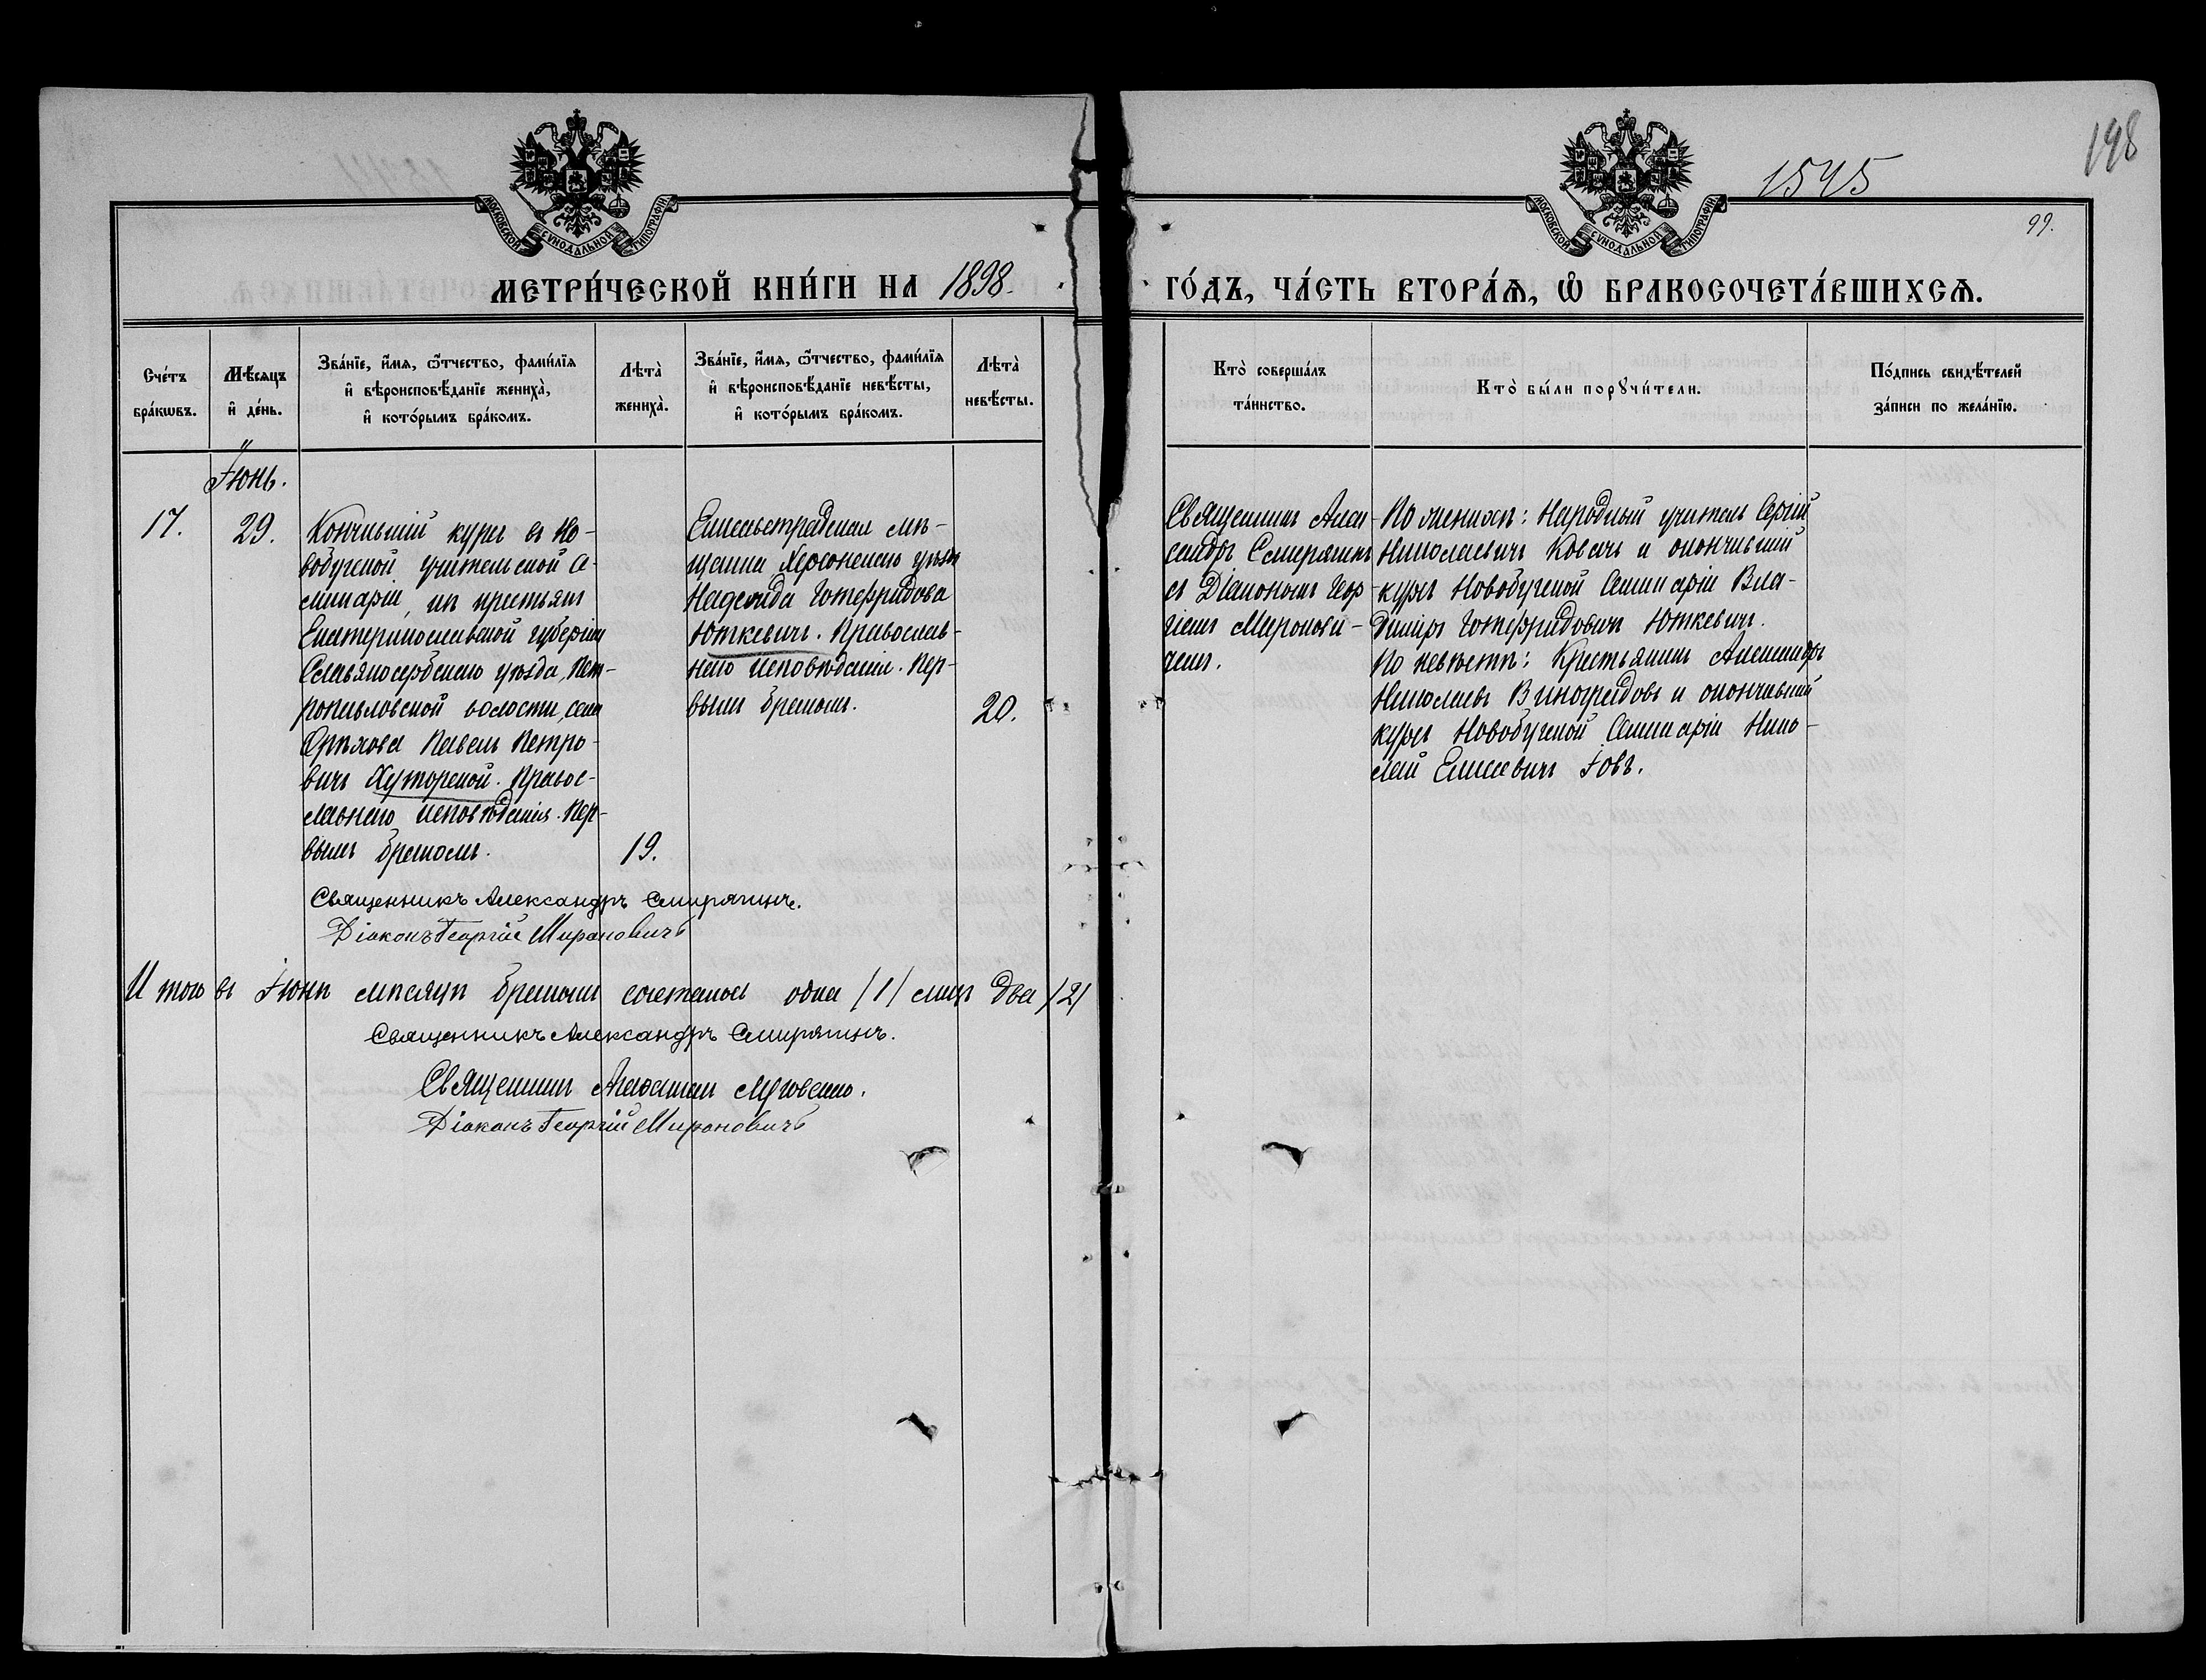 198
1545
99.
МОСКОВСКОЙ СѴНОДАЛЬНОЙ ТИПОГРАФІИ
МОСКОВСКОЙ СѴНОДАЛЬНОЙ ТИПОГРАФІИ
МЕТРИ́ЧЕСКОЙ КНИ́ГИ НА 1898. ГО́ДЪ, ЧА́СТЬ ВТОРА́Ѧ, Ѽ БРАКОСОЧЕТА́ВШИХСѦ.
Сче́тъ
бра́кѡвъ.
Мѣ́сяцъ
и҆ де́нь.
Зва́нїе, и҆́мѧ, ѻ҆́тчество, фамѝлїѧ
и҆ вѣроисповѣ́данїе жениха̀,
и҆ кото́рымъ бра́комъ.
Лѣта̀
жениха̀.
Зва́нїе, и҆́мѧ, ѻ҆́тчество, фамѝлїѧ
и҆ вѣроисповѣ́данїе невѣ́сты,
и҆ кото́рымъ бра́комъ.
Лѣта̀
невѣ́сты.
Кто̀ соверша́лъ
та́инство.
Кто̀ бы́ли порꙋчи́тели.
По́дпись свидѣ́телей
за́писи по жела́нїю.
Іюнь.
17.
29.
Кончившій курсъ въ Но-
вобугской учительской се-
минаріи, изъ крестьянъ
Екатеринославской губерніи
Славяносербскаго уѣзда, Пет-
ропавловской волости, села
Орѣхова Павелъ Петро-
вичъ Хуторской. Правос-
лавнаго исповѣданія. Пер-
вымъ бракомъ.
19.
Елисаветградская мѣ-
щанка Херсонскаго уѣзда
Надежда Готефридова
Юткевичъ. Православ-
наго исповѣданія. Пер-
вымъ бракомъ.
20.
Священникъ Алек-
сандръ Смирягинъ
съ Діакономъ Геор-
гіемъ Миронови-
чемъ.
По женихѣ: Народный учитель Сергій
Николаевичъ Ковачъ и окончившій
курсъ Новобугской Семинаріи Вла-
диміръ Готефридовичъ Юткевичъ.
По невѣстѣ: Крестьянинъ Александръ
Николаевъ Виноградовъ и окончившій
курсъ Новобугской Семинаріи Нико-
лай Елисеевичъ Іовъ.
Священникъ Александръ Смирягинъ.
Діаконъ Георгій Мироновичъ
Итого въ Іюнѣ мѣсяцѣ бракомъ сочеталось одна /1/ лицъ два /2/
Священникъ Александръ Смирягинъ.
Священникъ Аѳанасій
Діаконъ Георгій Мироновичъ